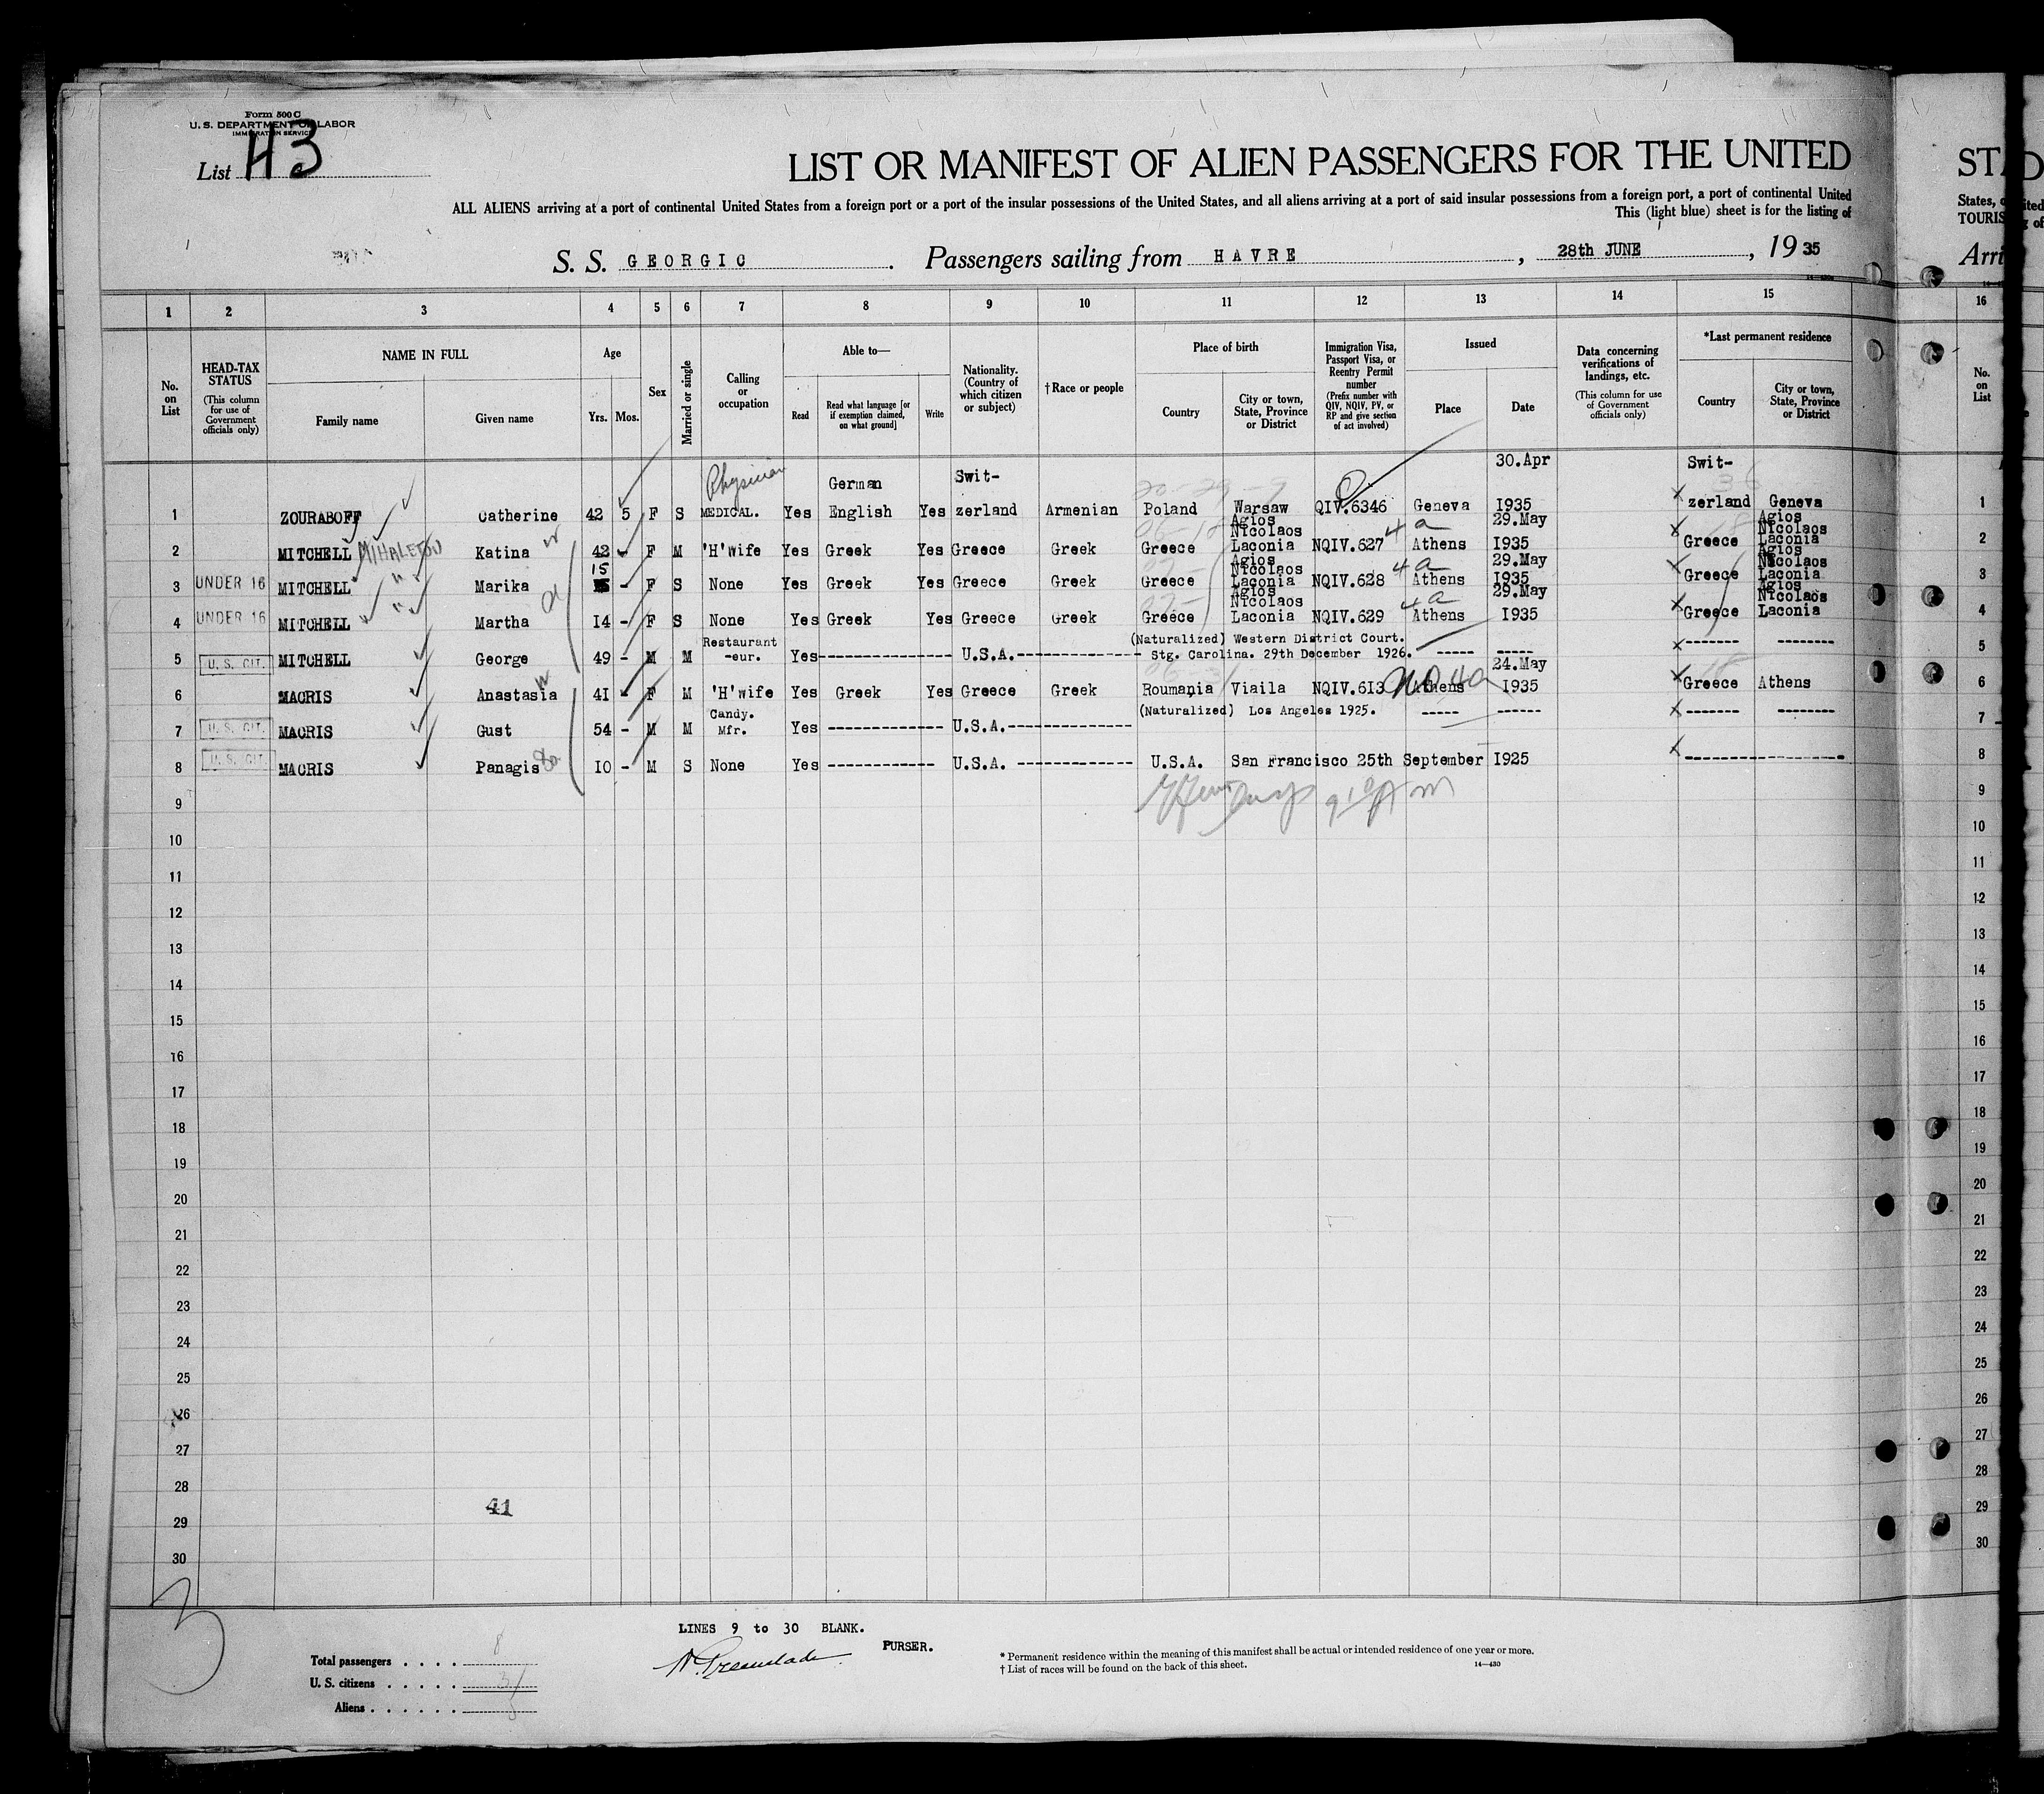 Form 500 C
U. S. DEPARTMENT OF LABOR
IMMIGRATION SERVICE
List H3
LIST OR MANIFEST OF ALIEN PASSENGERS FOR THE UNITED
STA
ALL ALIENS arriving at a port of continental United States from a foreign port or a port of the insular possessions of the United States, and all aliens arriving at a port of said insular possessions from a foreign port, a port of continental United
States,
This (light blue) sheet is for the listing of
TOURIS
S. S. GEORGIC. Passengers sailing from HAVRE, 28th JUNE, 1935
Arri
1 2 3 4 5 6 7 8 9 10 11 12 13 14 15 16
No. on List
HEAD-TAX STATUS (This column for use of Government officials only)
NAME IN FULL
Family name Given name
Age
Yrs. Mos.
Sex
Married or single
Calling or occupation
Able to—
Read
Read what language [or if exemption claimed, on what ground]
Write
Nationality. (Country of which citizen or subject)
†Race or people
Place of birth
Country
City or town, State, Province or District
Immigration Visa, Passport Visa, or Reentry Permit number (Prefix number with QIV, NQIV, PV, or RP and give section of act involved)
Issued
Place Date
Data concerning verifications of landings, etc. (This column for use of Government officials only)
*Last permanent residence
Country
City or town, State, Province or District
No. on List
1 ZOURABOFF Catherine 42 5 F S Physician MEDICAL. Yes German English Yes Swit-zerland Armenian Poland Warsaw QIV.6346 Geneva 30.Apr I935 Swit-zerland Geneva 1
2 MITCHELL MIHALETOU Katina 42 - F M 'H'wife Yes Greek Yes Greece Greek Greece Agios Nicolaos Laconia NQIV.627 4 a Athens 29.May I935 Greece Agios Nicolaos Laconia 2
3 UNDER 16 MITCHELL " Marika 15 - F S None Yes Greek Yes Greece Greek Greece Agios Nicolaos Laconia NQIV.628 4 a Athens 29.May I935 Greece Agios Nicolaos Laconia 3
4 UNDER 16 MITCHELL " Martha I4 - F S None Yes Greek Yes Greece Greek Greece Agios Nicolaos Laconia NQIV.629 4 a Athens 29.May I935 Greece Agios Nicolaos Laconia 4
5 U. S. CIT. MITCHELL George 49 - M M Restaurant -eur. Yes U.S.A. (Naturalized) Western District Court. Stg. Carolina. 29th December 1926. 5
6 MACRIS Anastasia 4I - F M 'H'wife Yes Greek Yes Greece Greek Roumania Viaila NQIV.6I3 no 4a Athens 24.May I935 Greece Athens 6
7 U. S. CIT. MACRIS Gust 54 - M M Candy. Mfr. Yes U.S.A. (Naturalized) Los Angeles 1925. 7
8 U. S. CIT. MACRIS Panagis I0 - M S None Yes U.S.A. U.S.A. San Francisco 25th September I925 8
9 9
10 10
11 11
12 12
13 13
14 14
15 15
16 16
17 17
18 18
19 19
20 20
21 21
22 22
23 23
24 24
25 25
26 26
27 27
28 28
41
29 29
30 30
3
LINES 9 to 30 BLANK.
PURSER.
Total passengers . . . . 8
U. S. citizens . . . . . 3
Aliens . . . . . . 5
* Permanent residence within the meaning of this manifest shall be actual or intended residence of one year or more.
† List of races will be found on the back of this sheet.
14—430